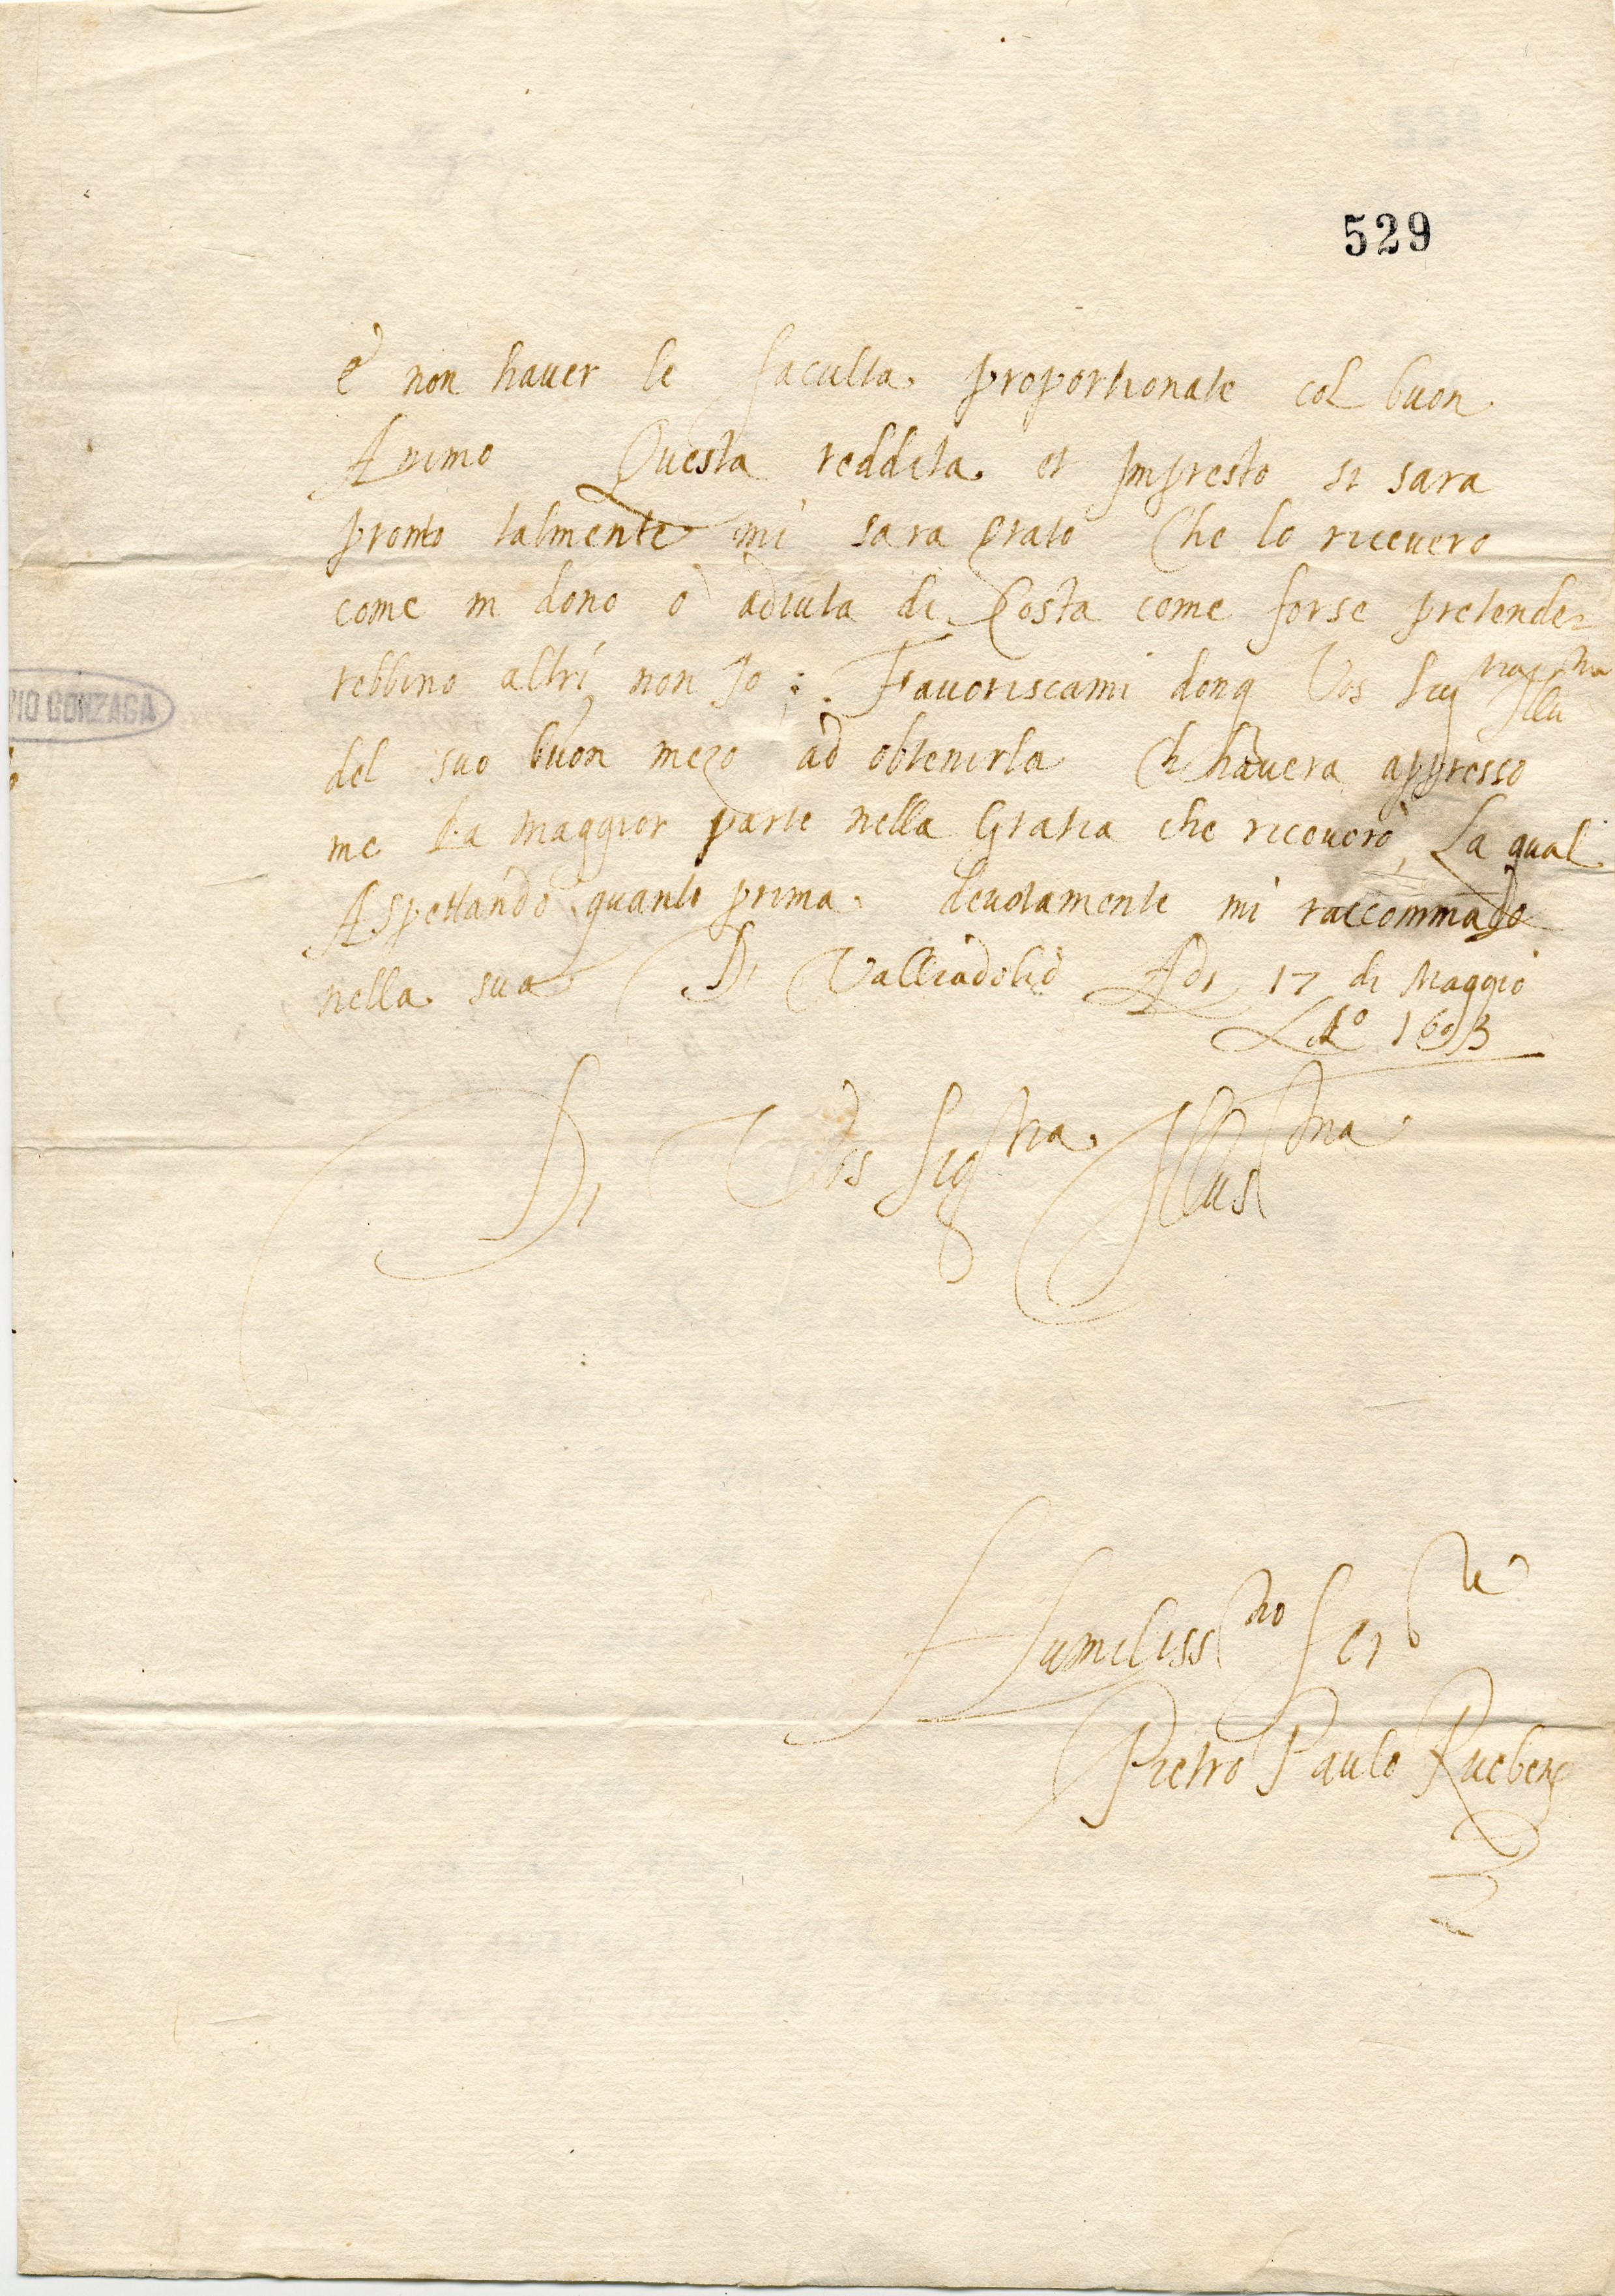 529
è non haver le faculta proportionate col buon
Animo Questa reddita et Impresto si sara
pronto talmente mi sara grato Che lo ricevero
come in dono o adiuta di Costa come forse pretende=
rebbino altri non Io : Favoriscami donq Vos Sig ria Illu ma
VIO GONZAGA
del suo buon mezo ad obtenirla Ch havera appresso
me La maggior parte nella Gratia che riceverò, La qual
Aspettando quanto prima devotamente mi raccommādo
nella sua Di Valliadolid Adi 17 di Maggio
Ao 1603
Di Vos Sig ria Illus ma
Humiliss mo Ser re
Pietro Paulo Rubens